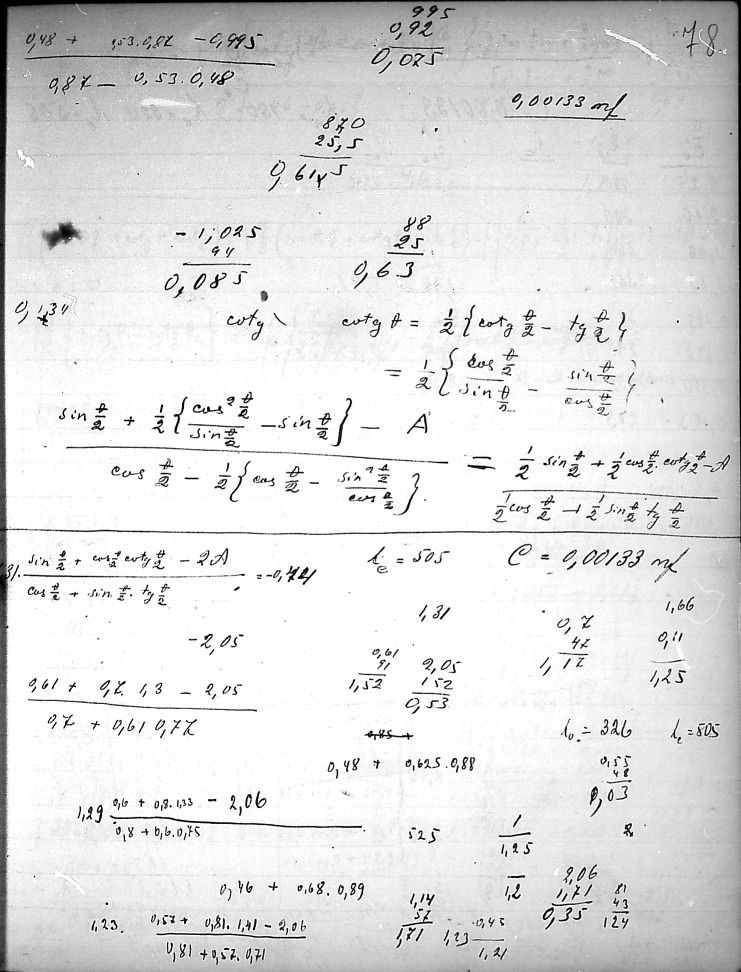 78
0,48 + 0,53.0,87 - 0,995
0,87 - 0,53.0,48
995
0,92
0,075
0,00133 mf
870
25,5
0,61 5
- 1,025
94
0,085
88
25
0,63
0, 1,34
cotg
cotg θ = 1/2 { cotg θ/2 - tg θ/2 }
= 1/2 { cos θ/2 / sin θ/2 - sin θ/2 / cos θ/2 }
sin θ/2 + 1/2 { cos² θ/2 / sin θ/2 - sin θ/2 } - A
cos θ/2 - 1/2 { cos θ/2 - sin² θ/2 / cos θ/2 }
= 1/2 sin θ/2 + 1/2 cos θ/2 . cotg θ/2 - A
1/2 cos θ/2 + 1/2 sin θ/2 tg θ/2
31. sin θ/2 + cos θ/2 cotg θ/2 - 2A
cos θ/2 + sin θ/2 . tg θ/2
lₑ = 505 C = 0,00133 mf
- 2,05
1,31
0,61
91
1,52
2,05
152
0,53
0,7
47
1,17
1,66
0,11
1,25
0,61 + 0,7. 1,3 - 2,05
0,7 + 0,61 0,77
l₀ = 326 lₑ = 805
0,85 +
0,48 + 0,625.0,88
0,55
48
0,03
1,29 0,6 + 0,8.1,33 - 2,06
0,8 + 0,6.0,75
525
1
1,25
1,2
2,06
1,71
0,35
81
43
124
0,46 + 0,68. 0,89
1,14
57
1,71
1,23 0,45
1,21
1,23. 0,57 + 0,81. 1,41 - 2,06
0,81 + 0,57. 0,71